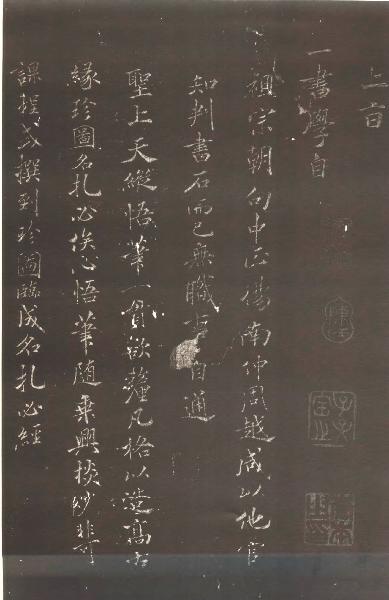 上旨
一書學自
祖宗朝句中正楊南仲周越咸以他官
知判書石而已無職事自通
聖上天縱悟筆一貫欲凡格以造高古
緣珍圖名札必俟心悟筆隨乘興掞妙非
課程或撰到珍圖臨成名札必經